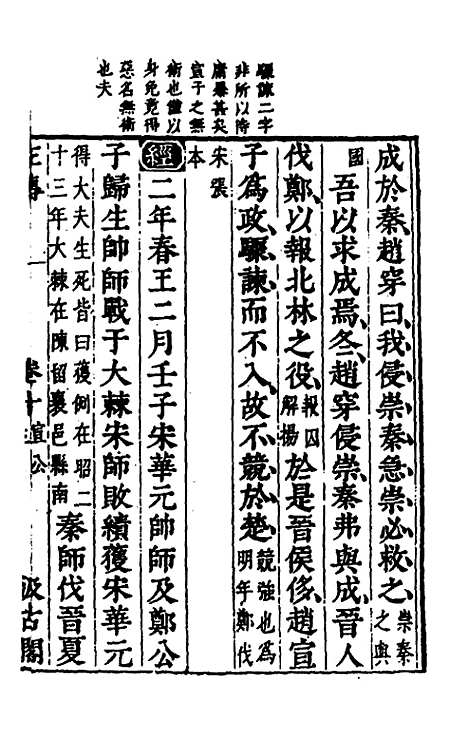 驟諫二字
非所以待
庸暴甚矣
宣子之無
術也僅以
身免竟得
惡名無術
也夫
成於秦趙穿曰我侵崇秦急崇必救之崇秦之與
國吾以求成焉冬趙穿侵崇秦弗與成晉人
伐鄭以報北林之役報囚解揚於是晉侯侈趙宣
子為政驟諫而不入故不競於楚競強也為明年鄭伐
宋張本
經二年春王二月壬子宋華元帥師及鄭公
子歸生帥師戰于大棘宋師敗績獲宋華元
得大夫生死皆曰獲例在昭二十三年大棘在陳留襄邑縣南秦師伐晉夏
卷十 宣公
汲古閣